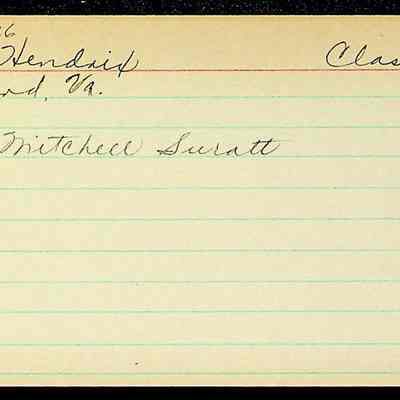 6
Hendrix Clas
rd, Va.
Mitchell Suratt